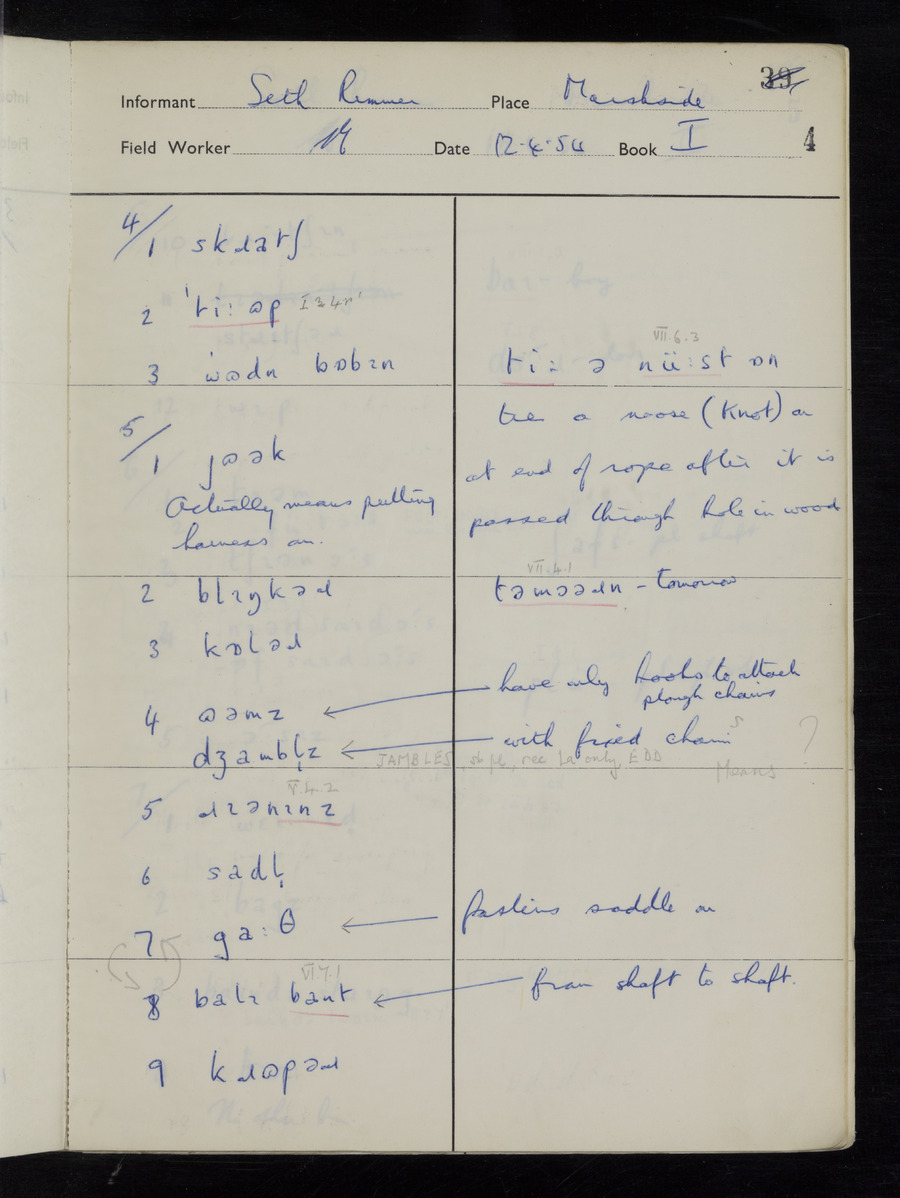 39
Informant Seth Rimmer Place Marshside
Field Worker Date 12.4.54 Book I 4
4/
1 skɹatʃ
2 'ti:ɷp
3 wɷdn bɒbɪn
VII.6.3
ti: ə nü:st ɒn
tie a noose (knot) on
5/
1 jɷək
at end of rope after it is
Actually means putting
harness on.
passed through hole in wood
2 blɪŋkəɹ
VII.4.1
təmɔəɹn - tomorrow
3 kɒləɹ
have only hooks to attach
plough chains
4 ɷəmz
dʒambl̩z
with fixed chains ?
JAMBLES, sb pl, rec La only EDD
Means
V.4.2
5 ɹɪənɪnz
6 sadl̩
7 ga:θ
fastens saddle on
VI.7.1
8 balɪ bant
from shaft to shaft.
9 kɹɷpəɹ